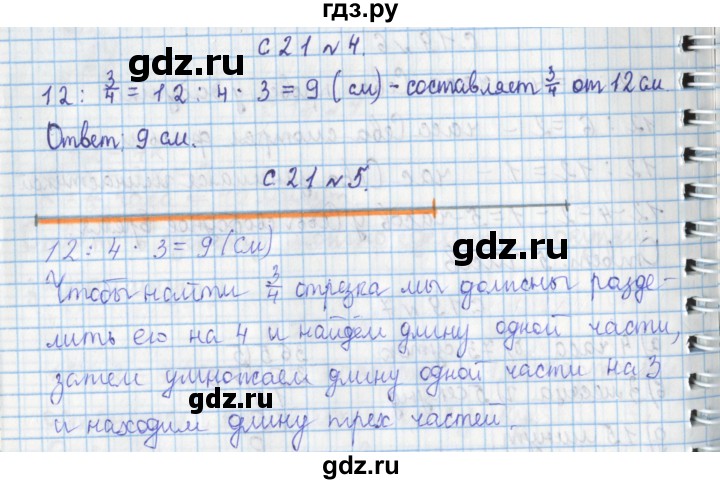 гдз.ру
с 21 № 4.
12 : 3/4 = 12 : 4 · 3 = 9 (см) - составляет 3/4 от 12 см
Ответ: 9 см.
с 21 № 5.
12 : 4 · 3 = 9 (см)
Чтобы найти 3/4 отрезка мы должны разде-
лить его на 4 и найдём длину одной части,
затем умножаем длину одной части на 3
и находим длину трех частей.
gdz.ru
gdz.ru
gdz.ru
gdz.ru
gdz.ru
gdz.ru
gdz.ru